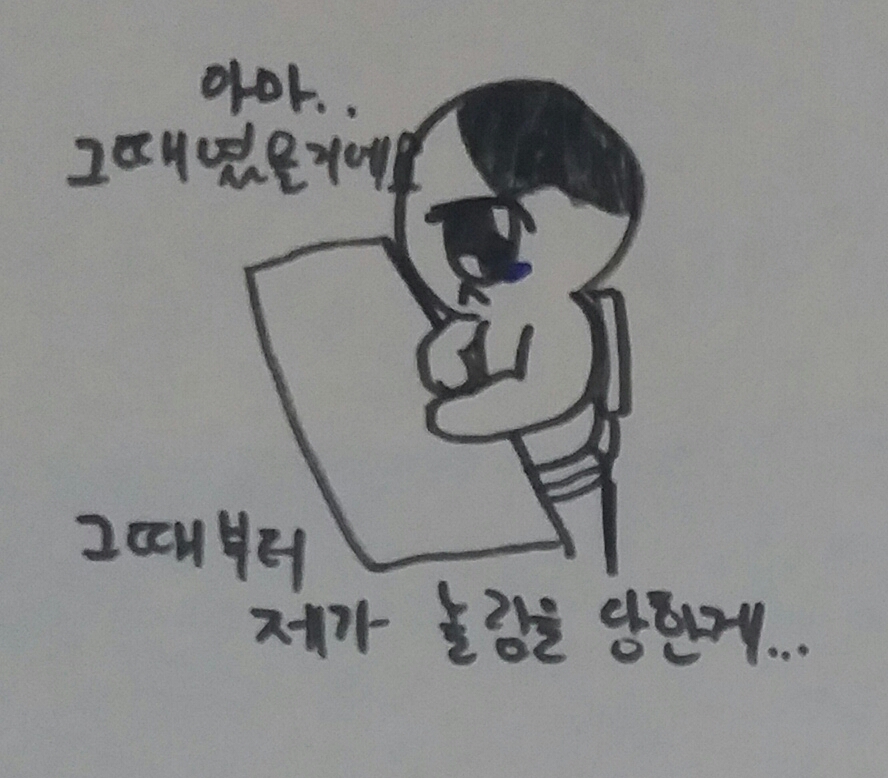 아마..
그때였을거에요
그때부터
제가 놀림을 당한게...